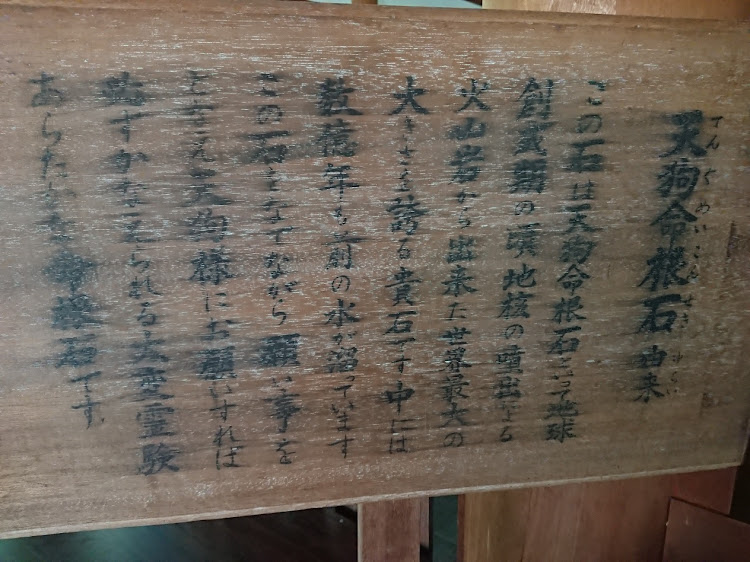 天狗命根石由来
てんぐめいこんせきゆらい
この石は天狗命根石といって地球
創成期の頃地核の噴出する
火山岩から出来た世界最大の
大きさを誇る貴石です中には
数億年も前の水が溜っています
この石をなでながら願い事を
となえ天狗様にお願いすれば
必ずかなえられる大変霊験
あらたかな命根石です